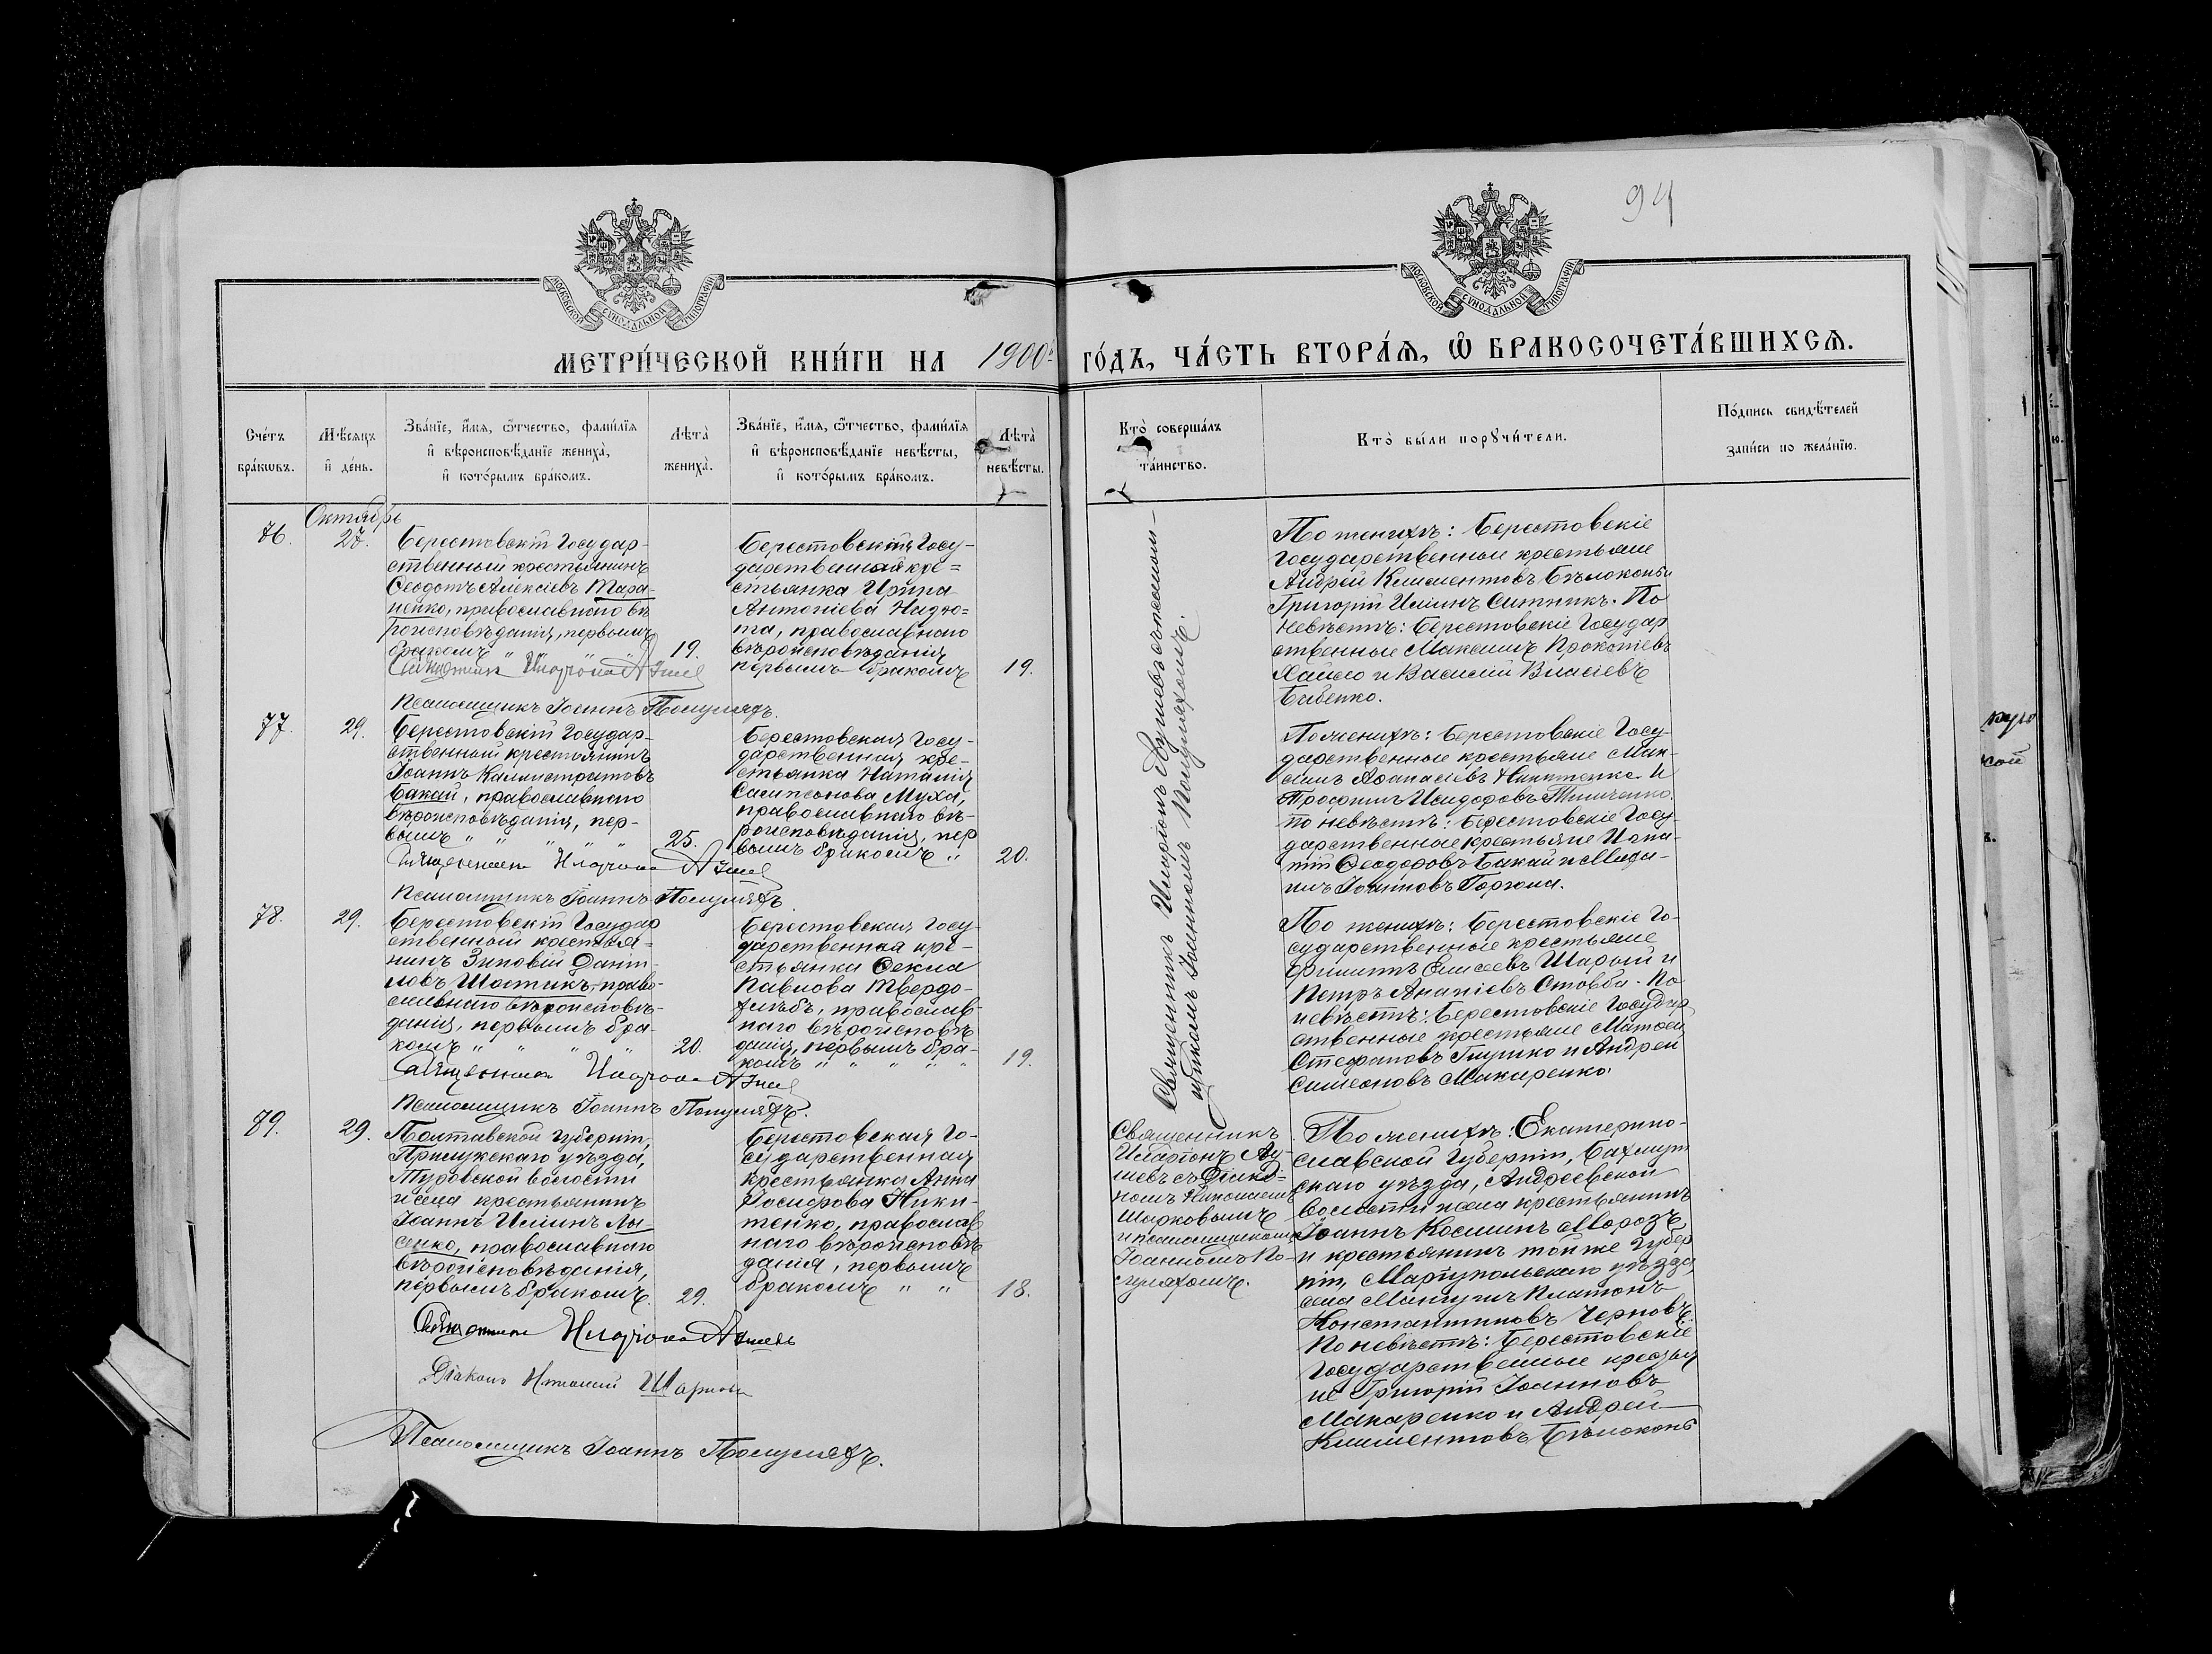 94
МОСКОВСКОЙ СѴНОДАЛЬНОЙ ТИПОГРАФІИ
МОСКОВСКОЙ СѴНОДАЛЬНОЙ ТИПОГРАФІИ
МЕТРИ́ЧЕСКОЙ КНИ́ГИ НА 1900 ГО́ДЪ, ЧА́СТЬ ВТОРА́Ѧ, Ѽ БРАКОСОЧЕТА́ВШИХСѦ.
Сче́тъ бра́кωвъ.
Мѣ́сѧцъ и҆ де́нь.
Зва́нїе, и҆́мѧ, ѻ҆́тчество, фами́лїѧ и҆ вѣроисповѣ́данїе жениха̀, и҆ кото́рымъ бра́комъ.
Лѣта̀ жениха̀.
Зва́нїе, и҆́мѧ, ѻ҆́тчество, фами́лїѧ и҆ вѣроисповѣ́данїе невѣ́сты, и҆ кото́рымъ бра́комъ.
Лѣта̀ невѣ́сты.
Кто̀ соверша́лъ та́инство.
Кто̀ бы́ли порꙋчи́тели.
По́дпись свидѣ́телей за́писи по жела́нїю.
Октябрь
76.
27.
Берестовскій Государ-
ственный крестьянинъ
Ѳеодотъ Алексіевъ Тара-
ненко, православнаго вѣ
роисповѣданія, первымъ
бракомъ " " "
19.
Берестовскія Госу-
дарственная кре=
стьянка Ирина
Антоніева Надю=
та, православнаго
вѣроисповѣданія
первымъ бракомъ
19.
Псаломщикъ Іоаннъ Полуляхъ.
Священникъ Иларіонъ съ псалом-
щикомъ Іоанномъ Полуляхомъ.
По женихѣ: Берестовскіе
Государственные крестьяне
Андрей Климентовъ Бѣлоконь и
Григорій Иліинъ Ситникъ. По
невѣстѣ: Берестовскіе Государ
ственные Максимъ Прокопіевъ
и Василій Власіевъ
Бабенко.
77.
29.
Берестовскій Государ-
ственный крестьянинъ
Іоаннъ Каллистратовъ
Бакай, православнаго
вѣроисповѣданія, пер-
вымъ " " " "
25.
Берестовская Госу-
дарственная кре-
стьянка Наталія
Сампсонова Муха,
православнаго вѣ-
роисповѣданія, пер
вымъ бракомъ "
20.
Псаломщикъ Іоаннъ Полуляхъ
По женихѣ: Берестовскіе Госу-
дарственные крестьяне Мак-
симъ Аѳанасіевъ Никитенко и
Трофимъ Исидоровъ Тимченко.
По невѣстѣ: Берестовскіе Госу-
дарственные крестьяне Игна-
тій Ѳеодоровъ Бакай и
Іоанновъ
78.
29.
Берестовскій Государ
ственный крестья-
нинъ Зиновій Даніи-
ловъ Шостикъ, право-
славнаго вѣроисповѣ-
данія, первымъ бра-
комъ " " " "
20.
Берестовская Госу-
дарственная кре-
стьянка Ѳекла
Павлова Твердо-
хлѣбъ, православ-
наго вѣроисповѣ
данія, первымъ бра-
комъ " " " "
19.
Псаломщикъ Іоаннъ Полуляхъ.
По женихѣ: Берестовскіе Го-
сударственные крестьяне
Филиппъ Елисеевъ Шарый и
Петръ Ананіевъ Стовба. По
невѣстѣ: Берестовскіе Государ
ственные крестьяне Матѳей
Стефановъ и Андрей
Симеоновъ Макаренко.
79.
29.
Полтавской губерніи,
Прилукскаго уѣзда,
волости
и села крестьянинъ
Іоаннъ Иліинъ Лы
сенко, православнаго
вѣроисповѣданія,
первымъ бракомъ.
29.
Берестовская Го-
сударственная
крестьянка Анна
Ники-
тенко, православ
наго вѣроисповѣ
данія, первымъ
бракомъ " "
18.
Священникъ
Иларіонъ
съ Діако-
номъ Николаемъ
Шарковымъ
и псаломщикомъ
Іоанномъ По-
луляхомъ.
По женихѣ: Екатерино-
славской губерніи, Бахмут
скаго уѣзда, Андреевской
волости и села крестьянинъ
Іоаннъ Косминъ Морозъ
и крестьянинъ той же губер
ніи, Маріупольскаго уѣзда,
села Мангушъ Платонъ
Константиновъ Черновъ.
По невѣстѣ: Берестовскіе
Государственные крестья
не Григорій Іоанновъ
Макаренко и Андрей
Климентовъ Бѣлоконь
Псаломщикъ Іоаннъ Полуляхъ.